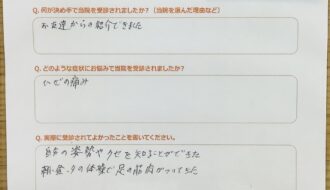 Q. 何が決め手で当院を受診されましたか?(当院を選んだ理由など)
お友達からの紹介できました
Q. どのような症状にお悩みで当院を受診されましたか?
ヒザの痛み
Q. 実際に受診されてよかったことを書いてください。
自分の姿勢やクセを知ることができた
朝、昼、夕の体験で足の筋肉がついてきた